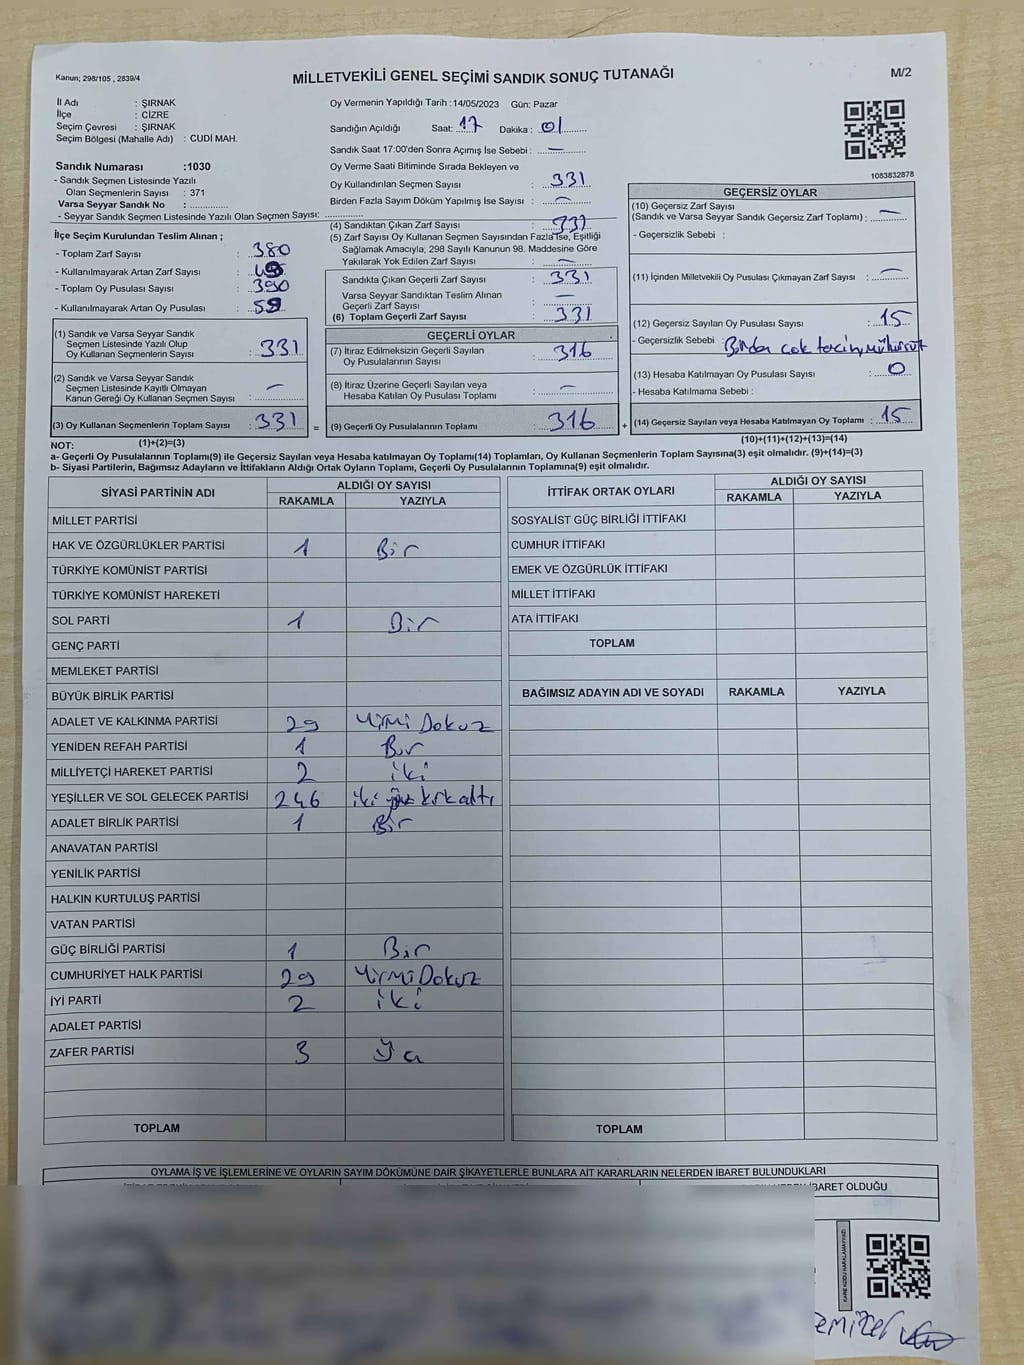 Kanun; 298/105 , 2839/4
MİLLETVEKİLİ GENEL SEÇİMİ SANDIK SONUÇ TUTANAĞI
M/2
İl Adı : ŞIRNAK
İlçe : CİZRE
Seçim Çevresi : ŞIRNAK
Seçim Bölgesi (Mahalle Adı) : CUDİ MAH.
Sandık Numarası :1030
- Sandık Seçmen Listesinde Yazılı
Olan Seçmenlerin Sayısı : 371
Varsa Seyyar Sandık No :
- Seyyar Sandık Seçmen Listesinde Yazılı Olan Seçmen Sayısı:
Oy Vermenin Yapıldığı Tarih :14/05/2023 Gün: Pazar
Sandığın Açıldığı Saat: 17 Dakika : 01
Sandık Saat 17:00'den Sonra Açımış İse Sebebi : —
Oy Verme Saati Bitiminde Sırada Bekleyen ve
Oy Kullandırılan Seçmen Sayısı : 331
Birden Fazla Sayım Döküm Yapılmış İse Sayısı : —
1083832878
İlçe Seçim Kurulundan Teslim Alınan ;
- Toplam Zarf Sayısı : 380
- Kullanılmayarak Artan Zarf Sayısı :
- Toplam Oy Pusulası Sayısı : 390
- Kullanılmayarak Artan Oy Pusulası : 59
(1) Sandık ve Varsa Seyyar Sandık
Seçmen Listesinde Yazılı Olup
Oy Kullanan Seçmenlerin Sayısı : 331
(2) Sandık ve Varsa Seyyar Sandık
Seçmen Listesinde Kayıtlı Olmayan
Kanun Gereği Oy Kullanan Seçmen Sayısı : —
(3) Oy Kullanan Seçmenlerin Toplam Sayısı : 331 =
(1)+(2)=(3)
(4) Sandıktan Çıkan Zarf Sayısı : 331
(5) Zarf Sayısı Oy Kullanan Seçmen Sayısından Fazla İse, Eşitliği
Sağlamak Amacıyla, 298 Sayılı Kanunun 98. Maddesine Göre
Yakılarak Yok Edilen Zarf Sayısı : —
Sandıkta Çıkan Geçerli Zarf Sayısı : 331
Varsa Seyyar Sandıktan Teslim Alınan
Geçerli Zarf Sayısı : —
(6) Toplam Geçerli Zarf Sayısı : 331
GEÇERLİ OYLAR
(7) İtiraz Edilmeksizin Geçerli Sayılan
Oy Pusulalarının Sayısı : 316
(8) İtiraz Üzerine Geçerli Sayılan veya
Hesaba Katılan Oy Pusulası Toplamı : —
(9) Geçerli Oy Pusulalarının Toplamı : 316 +
GEÇERSİZ OYLAR
(10) Geçersiz Zarf Sayısı
(Sandık ve Varsa Seyyar Sandık Geçersiz Zarf Toplamı) : —
- Geçersizlik Sebebi :
(11) İçinden Milletvekili Oy Pusulası Çıkmayan Zarf Sayısı : —
(12) Geçersiz Sayılan Oy Pusulası Sayısı : 15
- Geçersizlik Sebebi : Birden çok tercih mühürü
(13) Hesaba Katılmayan Oy Pusulası Sayısı : 0
- Hesaba Katılmama Sebebi :
(14) Geçersiz Sayılan veya Hesaba Katılmayan Oy Toplamı : 15
(10)+(11)+(12)+(13)=(14)
NOT:
a- Geçerli Oy Pusulalarının Toplamı(9) ile Geçersiz Sayılan veya Hesaba katılmayan Oy Toplamı(14) Toplamları, Oy Kullanan Seçmenlerin Toplam Sayısına(3) eşit olmalıdır. (9)+(14)=(3)
b- Siyasi Partilerin, Bağımsız Adayların ve İttifakların Aldığı Ortak Oyların Toplamı, Geçerli Oy Pusulalarının Toplamına(9) eşit olmalıdır.
SİYASİ PARTİNİN ADI ALDIĞI OY SAYISI
RAKAMLA YAZIYLA
MİLLET PARTİSİ
HAK VE ÖZGÜRLÜKLER PARTİSİ 1 Bir
TÜRKİYE KOMÜNİST PARTİSİ
TÜRKİYE KOMÜNİST HAREKETİ
SOL PARTİ 1 Bir
GENÇ PARTİ
MEMLEKET PARTİSİ
BÜYÜK BİRLİK PARTİSİ
ADALET VE KALKINMA PARTİSİ 29 Yirmi Dokuz
YENİDEN REFAH PARTİSİ 1 Bir
MİLLİYETÇİ HAREKET PARTİSİ 2 iki
YEŞİLLER VE SOL GELECEK PARTİSİ 246 iki yüz kırk altı
ADALET BİRLİK PARTİSİ 1 Bir
ANAVATAN PARTİSİ
YENİLİK PARTİSİ
HALKIN KURTULUŞ PARTİSİ
VATAN PARTİSİ
GÜÇ BİRLİĞİ PARTİSİ 1 Bir
CUMHURİYET HALK PARTİSİ 29 Yirmi Dokuz
İYİ PARTİ 2 iki
ADALET PARTİSİ
ZAFER PARTİSİ 3
TOPLAM
İTTİFAK ORTAK OYLARI ALDIĞI OY SAYISI
RAKAMLA YAZIYLA
SOSYALİST GÜÇ BİRLİĞİ İTTİFAKI
CUMHUR İTTİFAKI
EMEK VE ÖZGÜRLÜK İTTİFAKI
MİLLET İTTİFAKI
ATA İTTİFAKI
TOPLAM
BAĞIMSIZ ADAYIN ADI VE SOYADI RAKAMLA YAZIYLA
TOPLAM
OYLAMA İŞ VE İŞLEMLERİNE VE OYLARIN SAYIM DÖKÜMÜNE DAİR ŞİKAYETLERLE BUNLARA AİT KARARLARIN NELERDEN İBARET BULUNDUKLARI
İBARET OLDUĞU